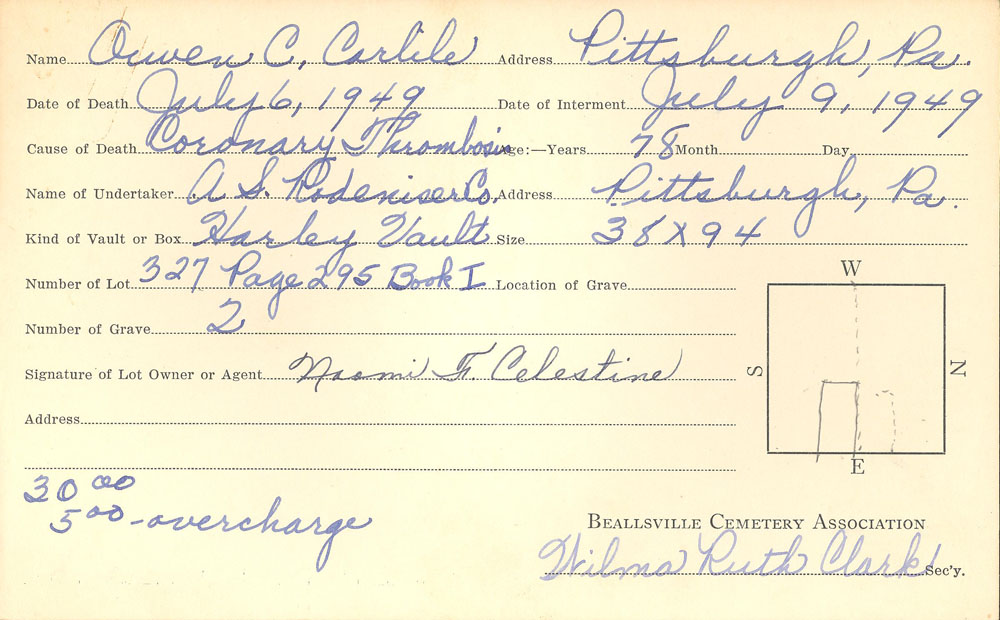 Name Owen C. Carlile Address Pittsburgh, Pa.
Date of Death July 6, 1949 Date of Interment July 9, 1949
Cause of Death Coronary Thrombosis Age:—Years 78 Month Day
Name of Undertaker A. S. Rodeniser Co. Address Pittsburgh, Pa.
Kind of Vault or Box Harley Vault Size 38 X 94
Number of Lot 327 Page 295 Book I Location of Grave
Number of Grave 2
Signature of Lot Owner or Agent Naomi F. Celestine
Address
W
S
N
E
30 00
5 00 - overcharge
BEALLSVILLE CEMETERY ASSOCIATION
Wilma Ruth Clark Sec'y.